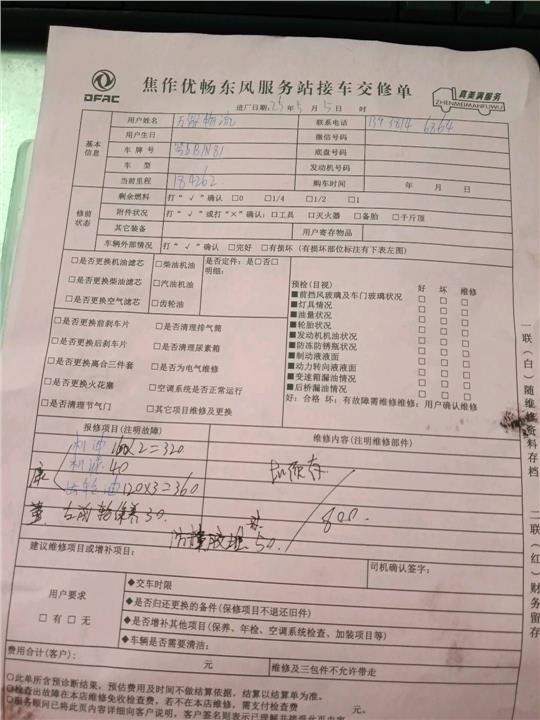 DFAC
焦作优畅东风服务站接车交修单
真美满服务
ZHENMEIMANFUWU
进厂日期:25年5月5日 时
基本信息
用户姓名
联系电话
用户生日
微信号码
车牌号
底盘号码
车 型
发动机号码
当前里程 184262
购车时间 年 月 日
修前状态
剩余燃料 打“√”确认 □0 □1/4 □1/2 □1
附件状况 打“√”或打“×”确认:□工具 □灭火器 □备胎 □千斤顶
其它装备
用户寄存物品
车辆外部情况 打“√”确认 □完好 □有损坏(有损坏部位标注有下表左图)
□是否更换机油滤芯 □柴油机油 是否定件:是□否□
□是否更换柴油滤芯 □汽油机油 明细:
□是否更换空气滤芯 □齿轮油
□是否更换前刹车片 □是否清理排气筒
□是否更换后刹车片 □是否清理尿素箱
□是否更换离合三件套 □是否为电气维修
□是否更换火花塞 □空调系统是否正常运行
□是否清理节气门 □其它项目维修及更换
预检(目视) 好 坏 维修
■前挡风玻璃及车门玻璃状况 □ □ □
■灯具情况 □ □ □
■油量状况 □ □ □
■轮胎状况 □ □ □
■发动机机油状况 □ □ □
■防冻防锈瓶状况 □ □ □
■制动液液面 □ □ □
■动力转向液液面 □ □ □
■变速箱漏油情况 □ □ □
■后桥漏油情况 □ □ □
好:合格 坏:有故障需维修维修:用户确认维修
报修项目(注明故障)
维修内容(注明维修部件)
机油 160x2=320
机滤 40
齿轮油 120x3=360
左前轮保养 30
50
800
建议维修项目或增补项目:
司机确认签字:
用户要求
□有 □无
◆交车时限
◆是否归还更换的备件(保修项目不退还旧件)
◆是否增补其他项目(保养、年检、空调系统检查、加装项目等)
◆车辆是否需要清洁:
费用合计(客户): 元
维修及三包件不允许带走
◎此单所含预诊断结果,预估费用及时间不做结算依据,结算以结算单为准。
◎检查出故障在本店维修免收检查费,若不在本店维修,需支付检查费 元。
一联(白)随维修资料存档
二联(红)财务留存